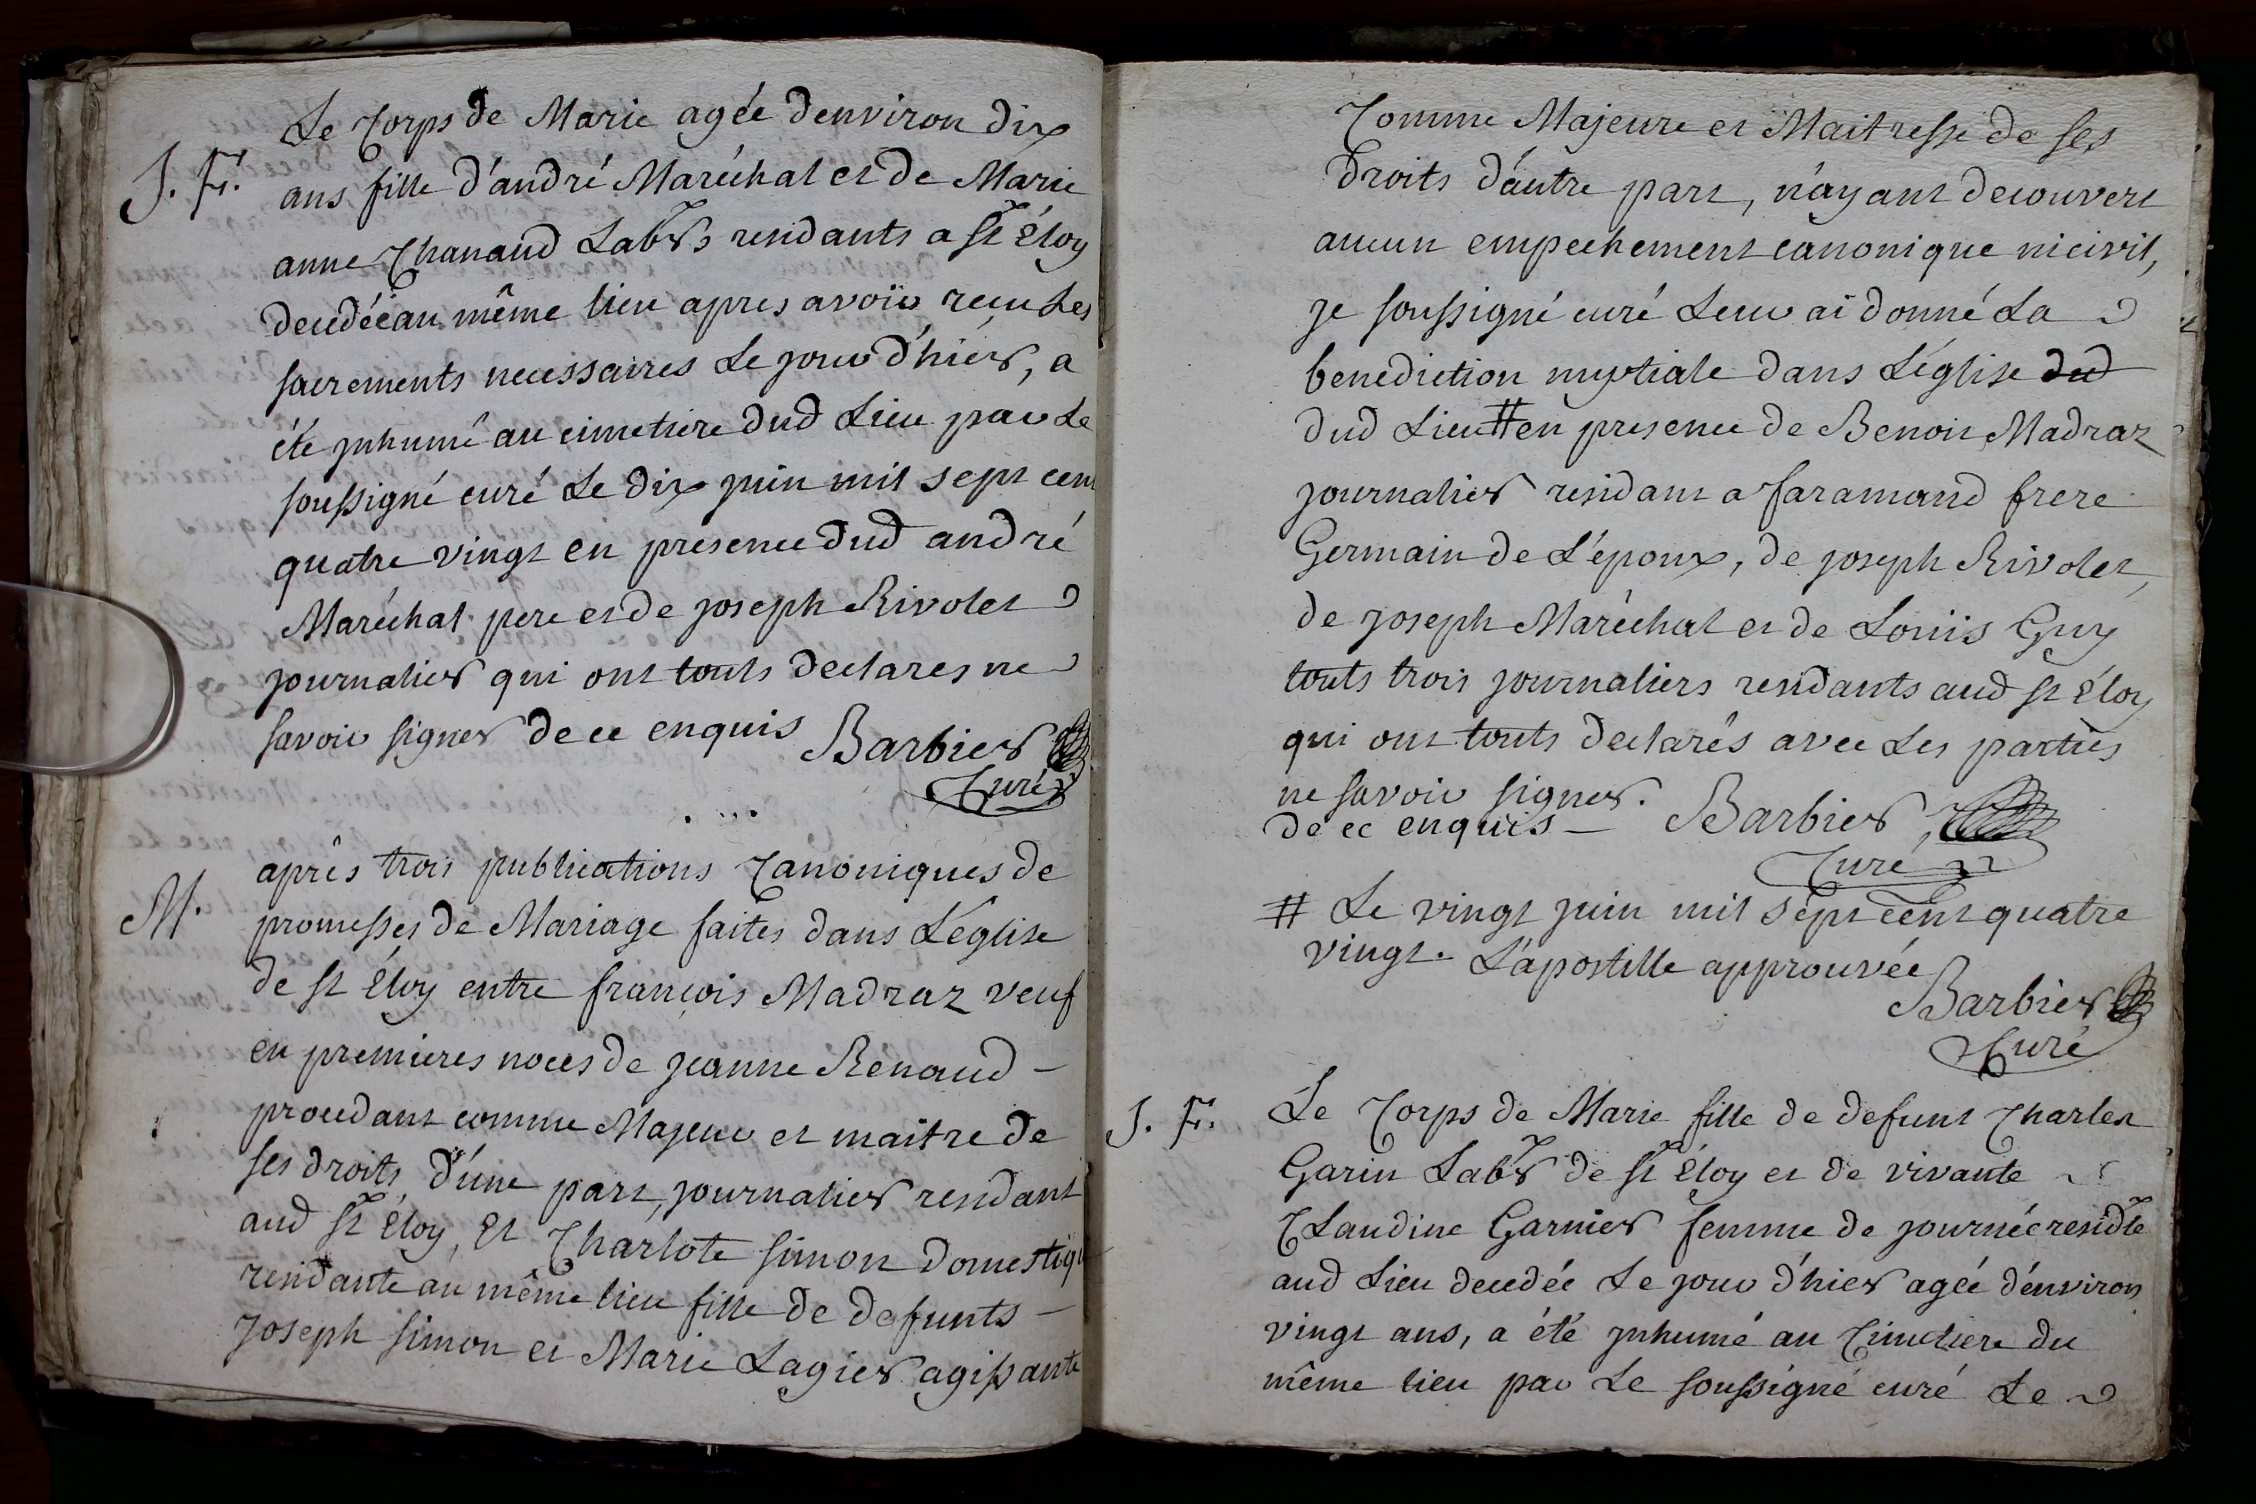 Le Corps de Marie agée denviron dix
J. F. ans fille d'andré Maréchal et de Marie
anne Chanaud Labrs residants a St Éloy
decedée au même lieu apres avoir recu Les
sacrements necessaires Le jour d'hier, a
éte jnhumé au cimetiere dud Lieu par Le
soussigné curé Le dix juin mil sept cent
quatre vingt en presence dud andré
Maréchal pere et de joseph Rivolet
journalier qui ont touts declares ne
savoir signer de ce enquis Barbier
Curé
aprês trois publications Canoniques de
M. promesses de Mariage faites dans L'église
de St Éloy entre françois Madraz veuf
en premieres noces de jeanne Rénaud —
procedant comme Majeur et maitre de
ses droits d'une part, journalier residant
aud St Éloy, Et Charlote simon domestiq
residante au même lieu fille de defunts —
joseph simon et Marie Lagier agissante
Comme Majeure et Maitresse de ses
droits d'autre part, n'ayant decouvert
aucun empechement canonique ni civil,
je soussigné curé Leur ai donné La
benediction nuptiale dans L'église dud
dud Lieu # en presence de Benoit Madraz
journalier residant a faramand frere
Germain de L'époux, de joseph Rivolet,
de joseph Maréchal et de Louis Guy
touts trois journaliers residants aud St Éloy
qui ont touts declarés avec Les parties
ne savoir signer.
de ce enquis — Barbier
Curé
# Le vingt juin mil sept cent quatre
vingt. L'apostille approuvée
Barbier
Curé
J. F. Le Corps de Marie fille de defunt Charles
Garin Labr de St Éloy et de vivante
Claudine Garnier femme de journée residte
aud Lieu decedée Le jour d'hier agée d'environ
vingt ans, a été jnhumé au Cimetiere du
même lieu par Le soussigné curé Le